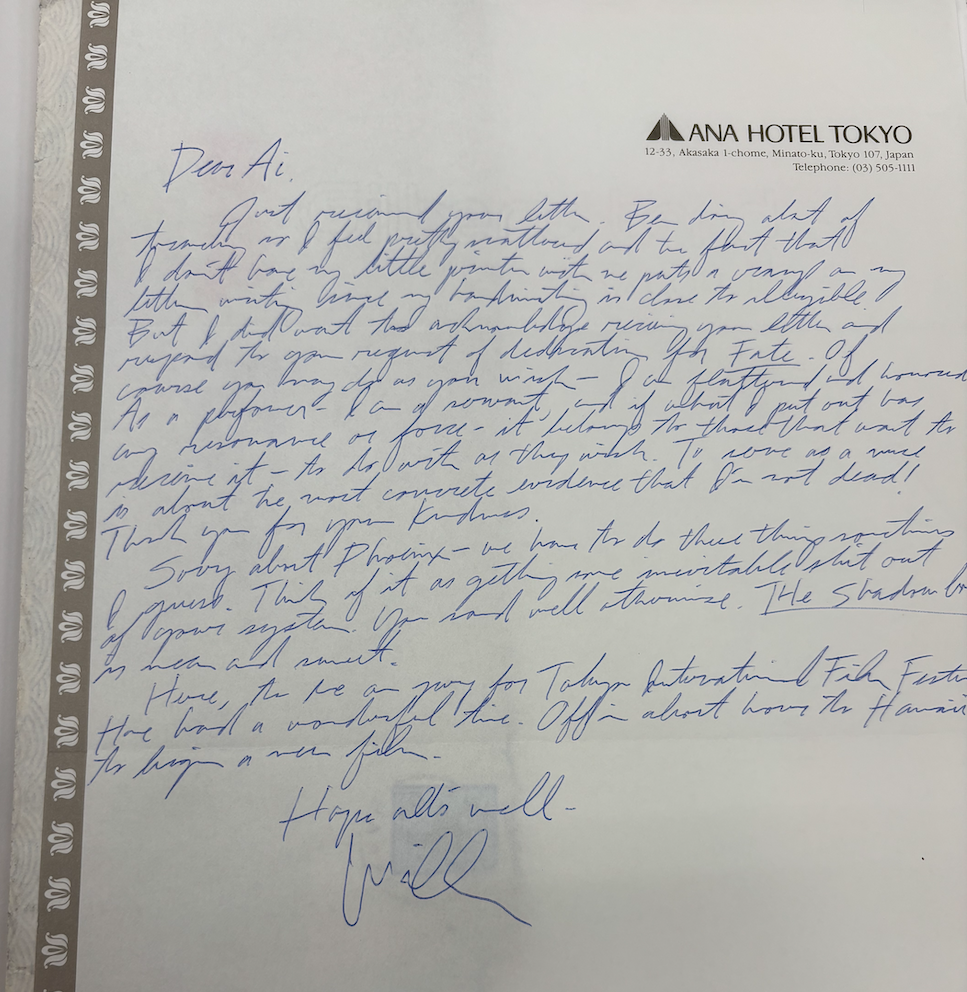 ANA HOTEL TOKYO
12-33, Akasaka 1-chome, Minato-ku, Tokyo 107, Japan
Telephone: (03) 505-1111
Dear Ai,
Just received your letter. Been doing alot of
traveling so I feel pretty scattered and the fact that
I don't have my little printer with me puts a on my
letter writing since my handwriting is close to illegible
But I did want to acknowledge receiving your letter and
respond to your request of dedication for Fate. Of
course you may do as you wish – I am flattered and honored
As a performer – I am a servant, and if what I put out has
any resonance or force – it belongs to those that want to
receive it – to do with as they wish. To serve as a muse
is about the most concrete evidence that I'm not dead!
Thank you for your kindness.
Sorry about Phoenix – we have to do these things sometimes
I guess. Think of it as getting some inevitable shit out
of your system. You sound well otherwise. The Shadow
is mean and sweet.
Here, to go for Tokyo International Film
Have had a wonderful time. Off in about hour to Hawaii
to begin a new film.
Hope all's well –
Will